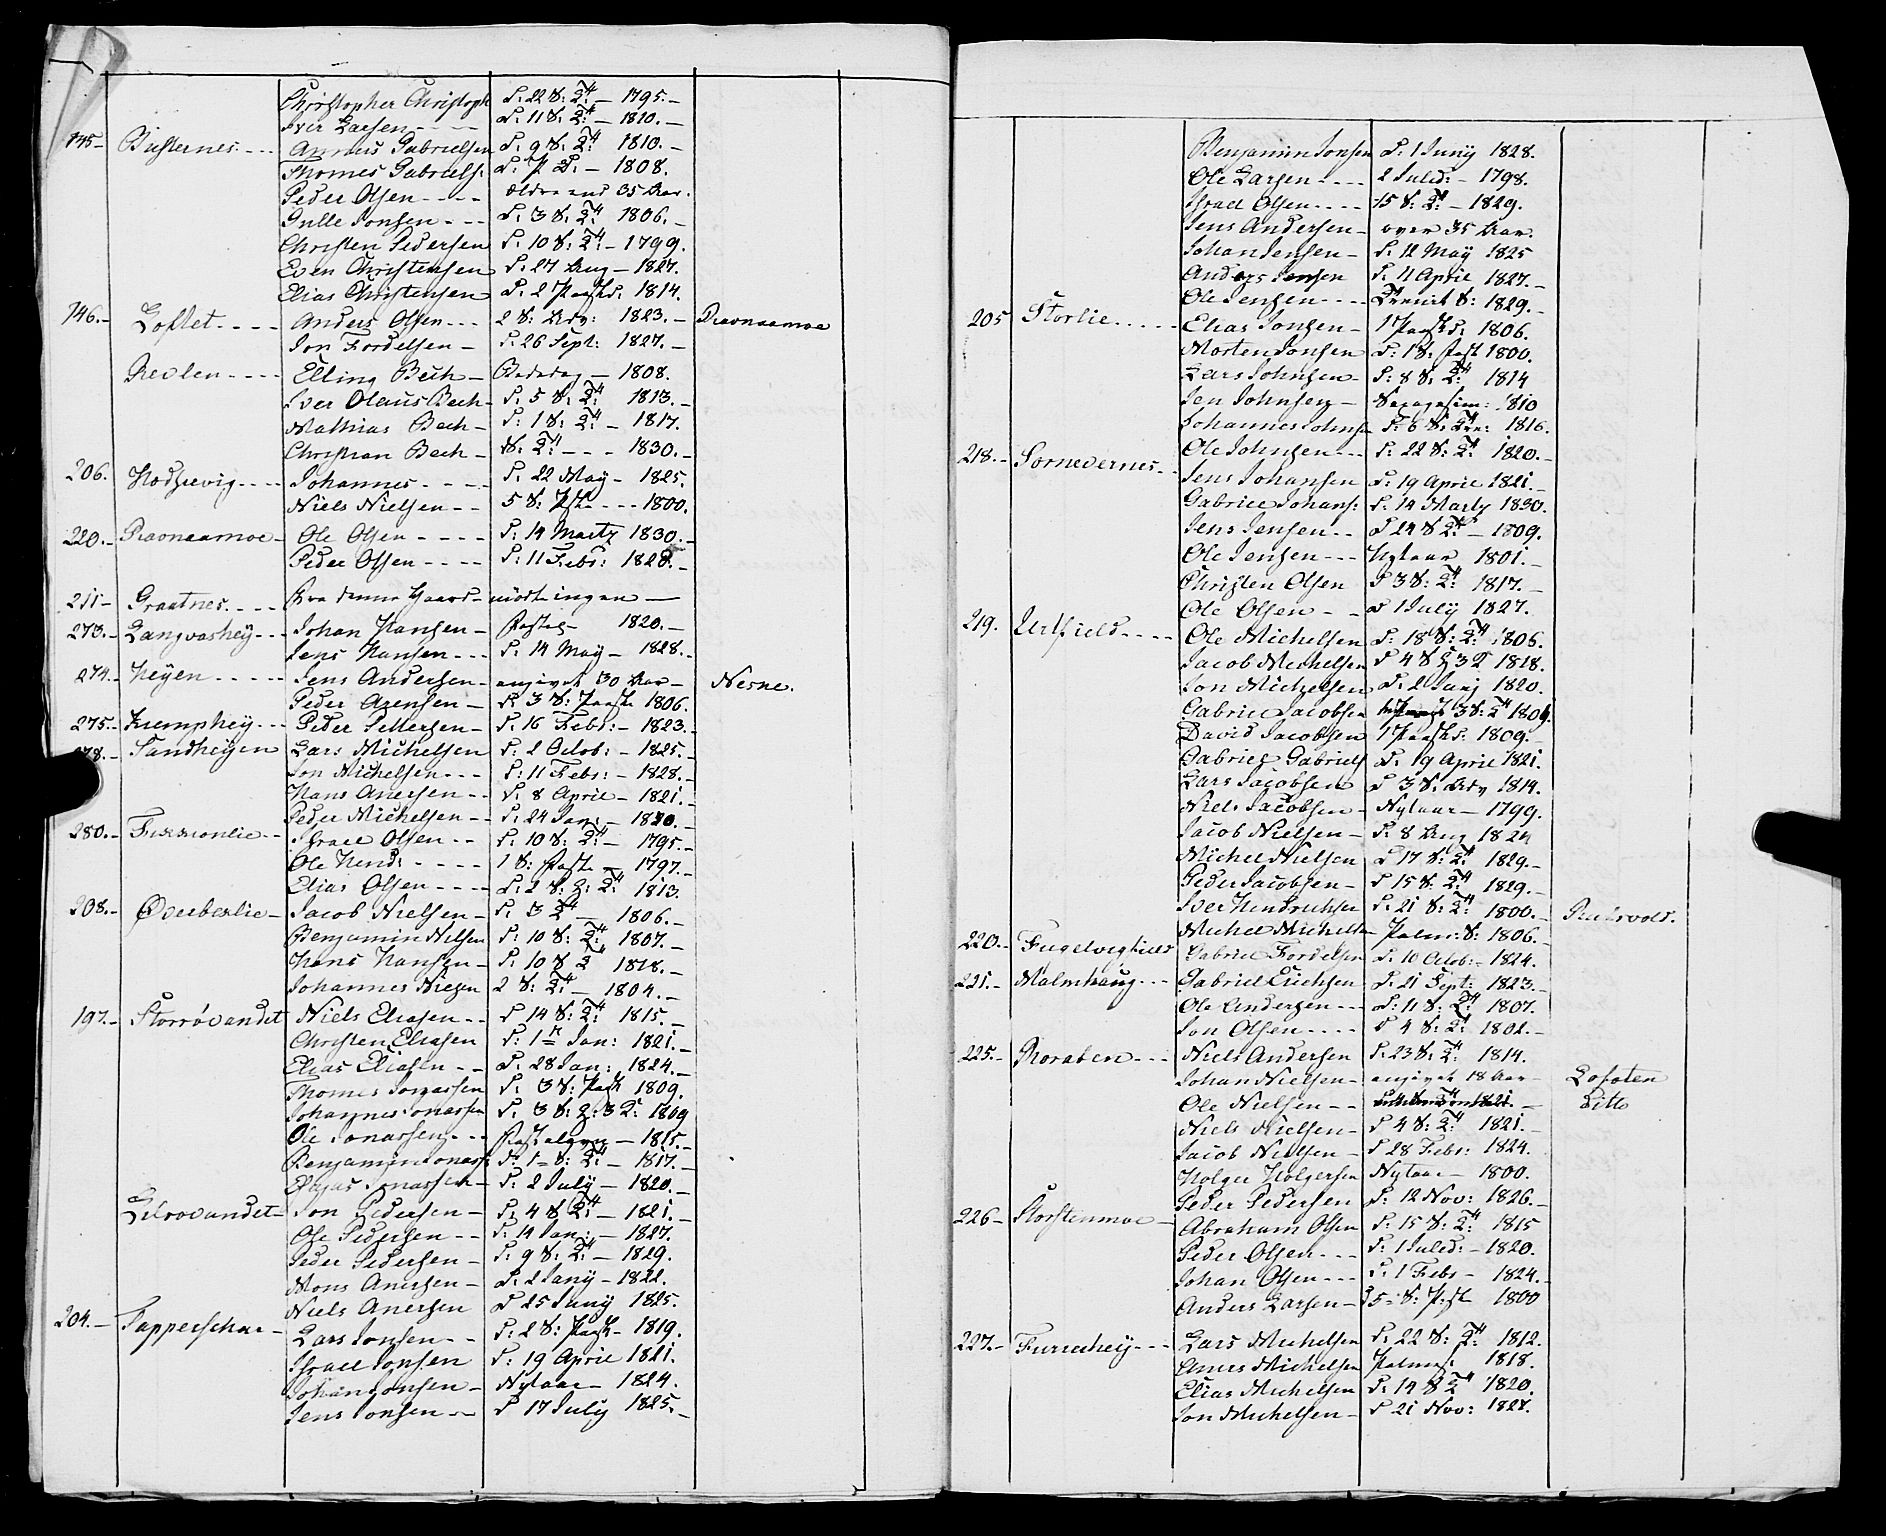 Christopher Christoph D: 22 S: Tr: 1795.
Iver Larsen D: 11 S: Tr: 1810.
145 Busternes Anners Gabrielsen D: 9 S: Tr: 1810.
Thomes Gabriels: D: 1808.
Peder Olsen Ældre end 35 Aar.
Gulle Jonsen D: 3 S: Tr: 1806.
Christen Pedersen D: 10 S: Tr: 1799.
Even Christensen D: 27 Aug 1827.
Elias Christensen D: 2 Paaskd: 1814.
146. Loftet Anders Olsen 2 S: Adv: 1823. Ravnaamoe
Jon Fordelsen D: 26 Sept: 1827.
Revlen Elling Bech Bededag 1808.
Iver Olaus Bech D: 5 S: Tr: 1813.
Mathias Bech D: 1 S: Tr: 1817.
Christian Bech S: Tr: 1830.
206. Hodsevig Johannes D: 22 May 1825.
Niels Nielsen 5 S: Pske 1800.
220. Ravnaamoe Ole Olsen D: 14 Martz 1830.
Peder Olsen D: 11 Febr: 1828.
211 Graatnes Fra denne Gaard mödte ingen
273. Langvashey Johan Hansen Fastel 1820.
Jens Hansen D: 14 May 1828.
274. Heyen Jens Andersen angivet 30 Aar Nesne.
Peder Arensen D: 3 S: Paaske 1806.
275. Kremphey Peder Settersen D: 16 Febr: 1823.
278. Sandheyen Lars Michelsen D: 2 Octob: 1825.
Jon Michelsen D: 11 Febr: 1828.
Hans Anersen D: 8 April 1821.
Peder Michelsen D: 24 Jan: 1820.
280. Israel Olsen D: 10 S: Tr: 1795.
Ole Hend: 1 S: Faste 1797.
Elias Olsen D: 2 S: Tr: 1813.
208. Överberlie Jacob Nielsen D: 3 Tr: 1806.
Benjamin Nilsen D: 10 S: Tr: 1807.
Hans Hansen D: 10 S Tr: 1818.
Johannes 2 S: Tr: 1804.
197. Storrövandet Niels Eliasen D 14 S: Tr: 1815.
Christen Eliasen D: 1 Jan: 1821.
Elias Eliasen D: 28 Jan: 1824.
Thomes Jonassen D: 3 S: Pask 1809.
Johannes Jonassen D: 3 S: 1809
Ole Jonassen 1815.
Benjamin Jonass: D: 1 S: Tr: 1817.
Jonassen D: 2 July 1820.
Lilrovandet Jon Pedersen D: 4 S Tr: 1821.
Ole Pedersen D: 14 Jan: 1827.
Peder Pedersen D: 9 S: Tr: 1829.
Mons Anersen D: 2 Juny 1822.
Niels Anersen D 25 Juny 1825.
204. Tapperschar Lars Jonsen D: 2 S: Pask 1819.
Israel Jonsen D: 19 April 1821.
Johan Jonsen Nytaar 1824.
Jens Jonsen D 17 July 1825.
Benjamin Jonsen D: 1 Juny 1828.
Ole Larsen 2 Juled: 1798.
Israel Olsen 15 S: Tr: 1829.
Jens Andersen over 35 Aar.
Johan Jensen D: 12 May 1825
Anders Jensen D: 11 April 1827.
Ole Jensen S: 1829.
205 Storlie Elias Jonsen 1 Paaskd: 1806.
Morten Jonsen D: 1 S: Fast 1800.
Lars Johnsen D: 8 S: Tr: 1814
Jen Johnsen Sexagesim: 1810
Johannes Johnsen D: 6 S: Tre: 1816.
218. Sornevernes Ole Johnsen D: 22 S: Tr: 1820.
Jens Johansen D: 19 April 1821.
Gabriel Johans: D: 14 Martz 1830.
Jens Jensen D 24 S Tr: 1809.
Ole Jensen Nytaar 1801.
Christen Olsen D 3 S: Tr: 1817.
Ole Olsen D 1 July 1827.
219. Urtfield Ole Michelsen D: 18 S: Tr: 1806.
Jacob Michelsen D 4 S 1818.
Jon Michelsen D: 2 Juny 1820.
Gabriel Jacobsen 3 S: Tr
David Jacobsen 1 Paaskd: 1809.
Gabriel Gabriels D: 19 April 1821.
Lars Jacobsen D 3 S: Adv 1814.
Niels Jacobsen Nytaar 1799.
Jacob Nielsen D: 8 Aug 1824
Michel Nielsen D 17 S: Tr: 1829.
Peder Jacobsen D 15 S: Tr: 1829.
Iver Hendrichsen D: 21 S: Tr: 1800.
Michel Michelsen Palm: S: 1806.
220. Fugelvigfield Gabriel Fordelsen D: 10 Octob: 1824.
221. Malmhaug Gabriel Erichsen D: 21 Sept: 1823.
Ole Andersen D: 11 S: Tr: 1807.
Jon Olsen D 4 S: Tr: 1802.
225. Roraben Niels Andersen D: 23 S: Tr: 1814.
Johan Nielsen angivet 18 Aar Lofoten
Ole Nielsen ditto
Niels Nielsen D 4 S: Tr: 1821.
Jacob Nielsen D 28 Febr: 1824.
Holger Holgersen Nytaar 1800.
Peder Pedersen D: 12 Nov: 1826.
226 Storstenmoe Abraham Olsen D: 15 S: Tr: 1815
Peder Olsen D: 1 Juled: 1820.
Johan Olsen D: 1 Febr 1824.
Anders Larsen D 5 S: Pask 1800
227. Furrehey Lars Michelsen D: 22 S: Tr: 1812.
Aners Michelsen Palmes: 1818.
Elias Michelsen D: 14 S Tr 1820.
Jon Michelsen D 21 Nov: 1827.